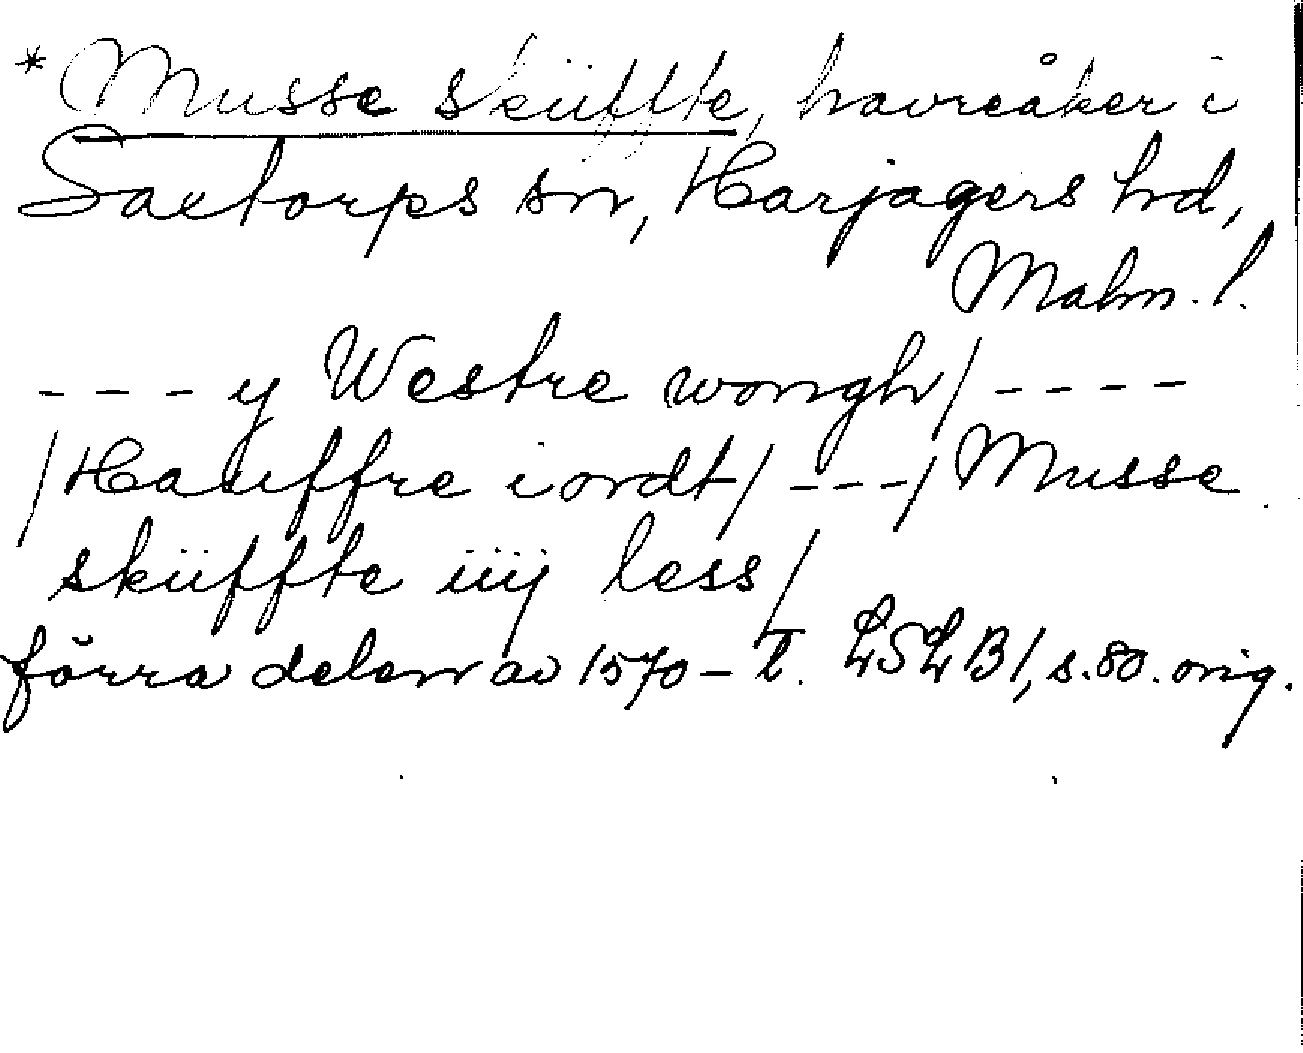 * Musse sküffte, havreåker i
Saxtorps sn, Harjagers hd,
Malm. l.
- - - y Westre wongh/ - - - -
/Hauffre iordt/ - - -/ Musse
sküffte iiij less/
förra delen av 1570-t. LSLB1, s. 80. orig.